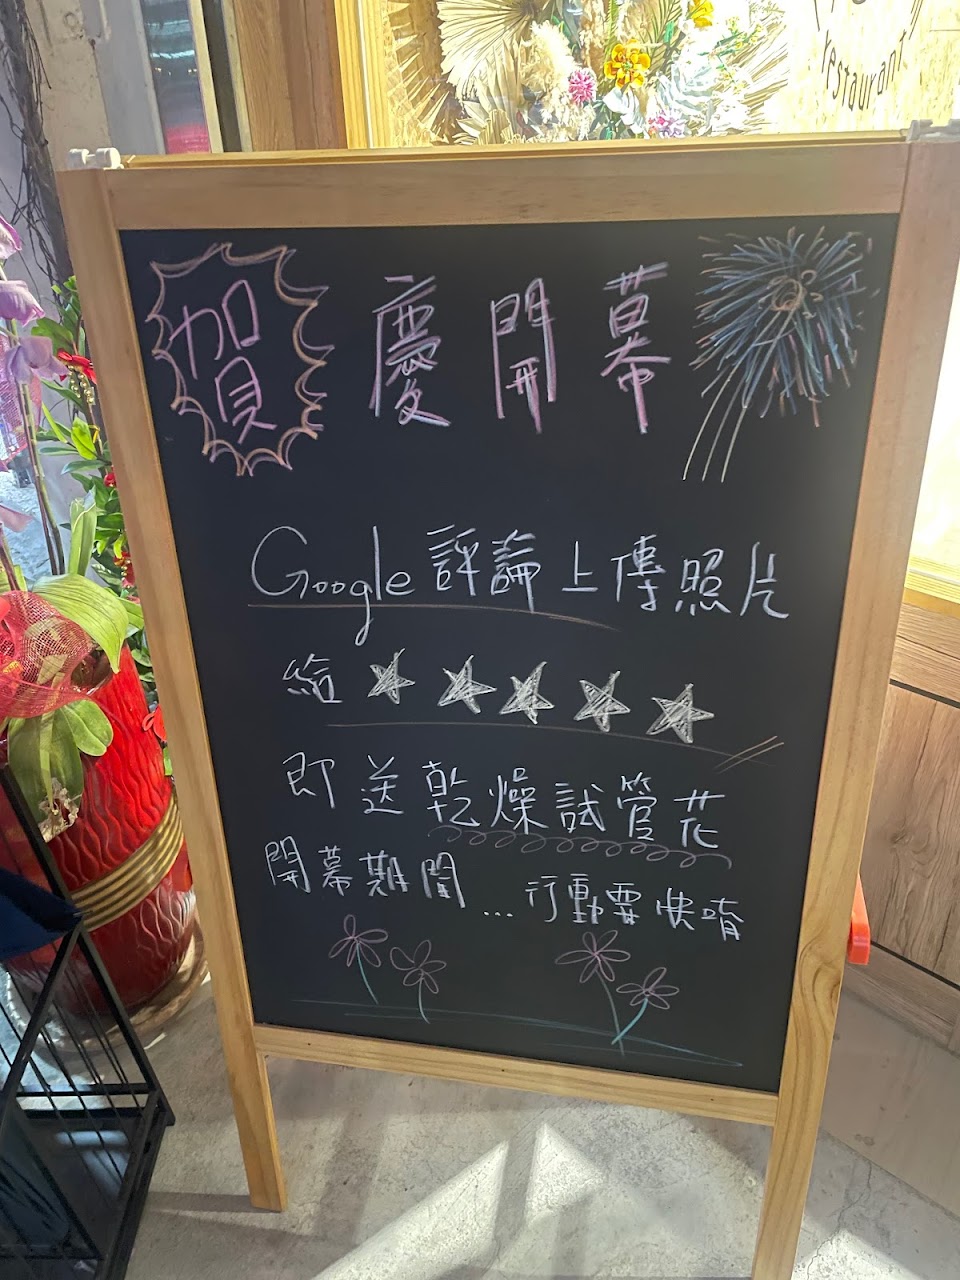 restaurant
賀 慶開幕
Google評論上傳照片
給★★★★★
即送乾燥試管花
開幕期間...行動要快唷